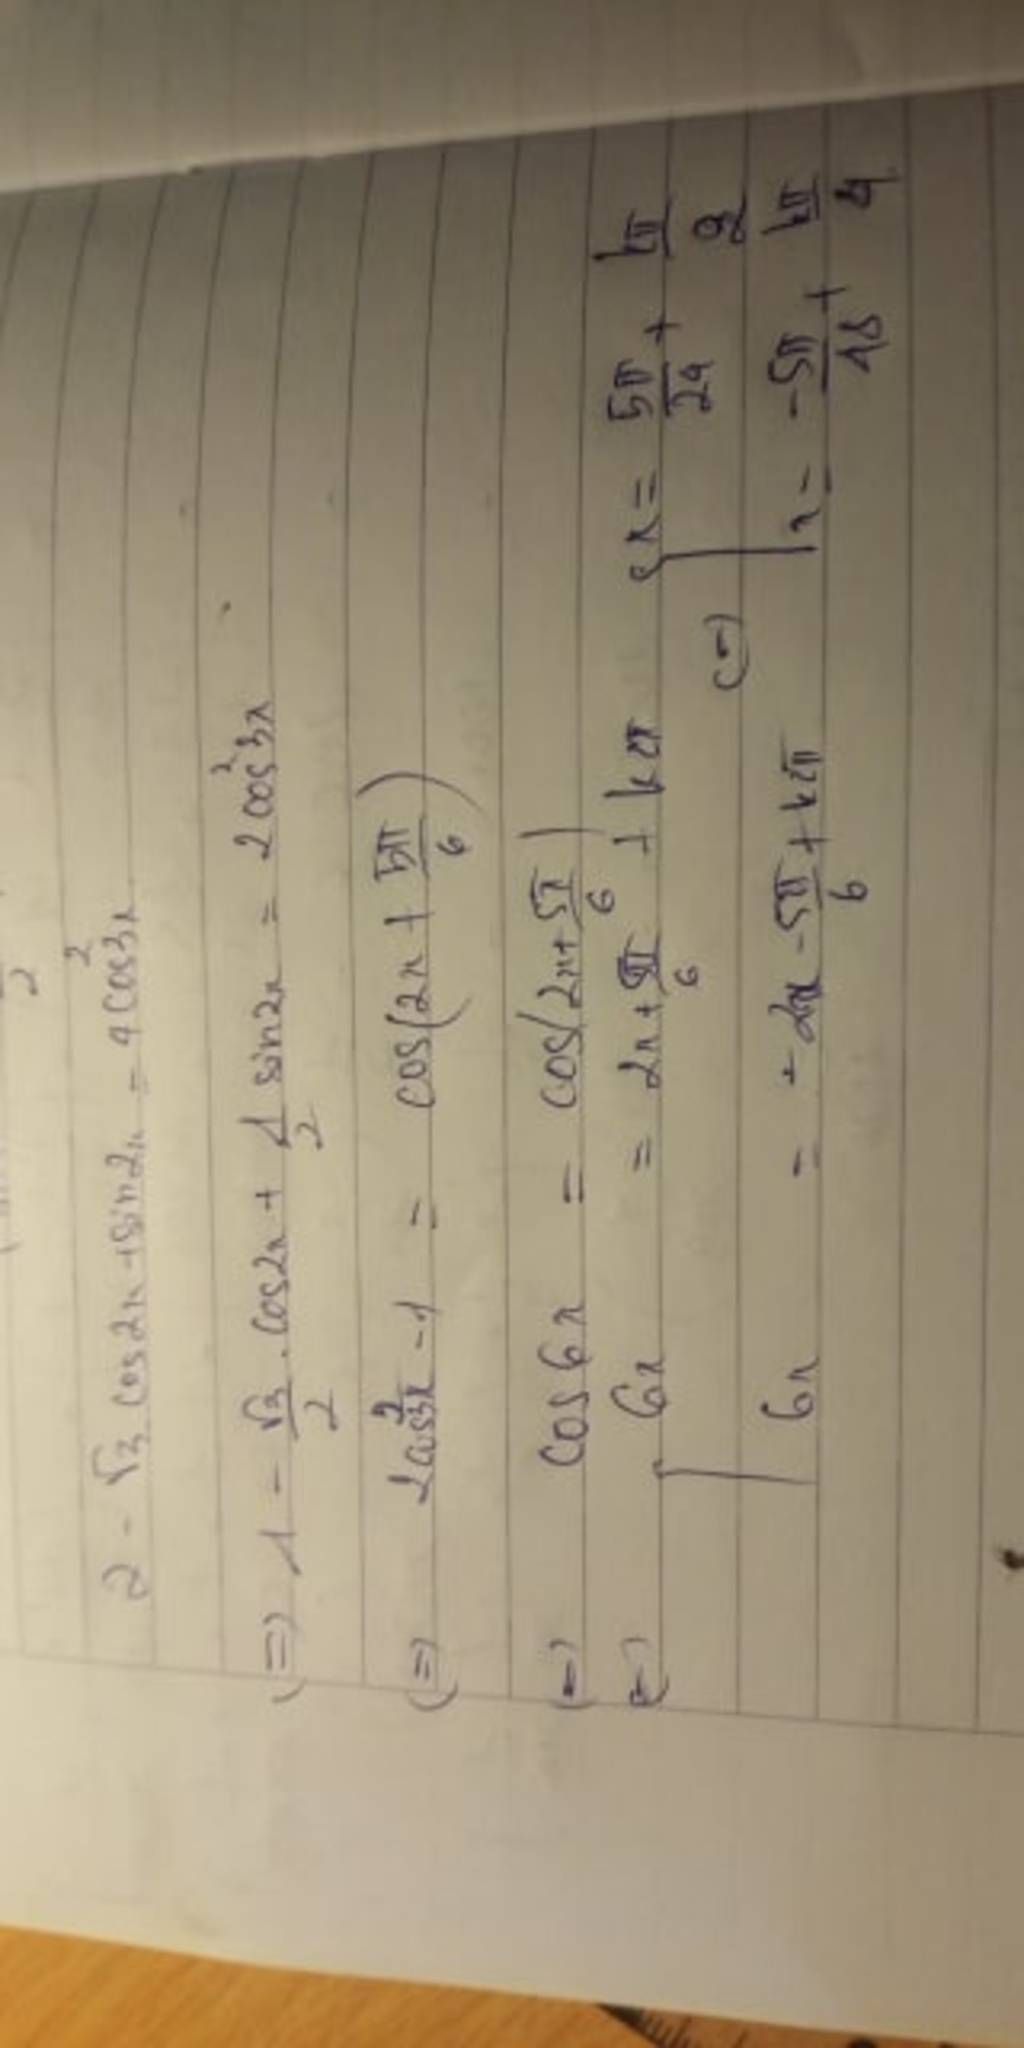 2 - √3 cos2x + sin2x = 4cos²3x
(=) 1 - √3/2 . cos2x + 1/2 sin2x = 2cos²3x
(=) 2cos²3x - 1 = cos(2x + 5π/6)
(=) cos6x = cos(2x + 5π/6)
(=) [ 6x = 2x + 5π/6 + k2π (=) [ x = 5π/24 + kπ/2
6x = -2x - 5π/6 + k2π x = -5π/48 + kπ/4